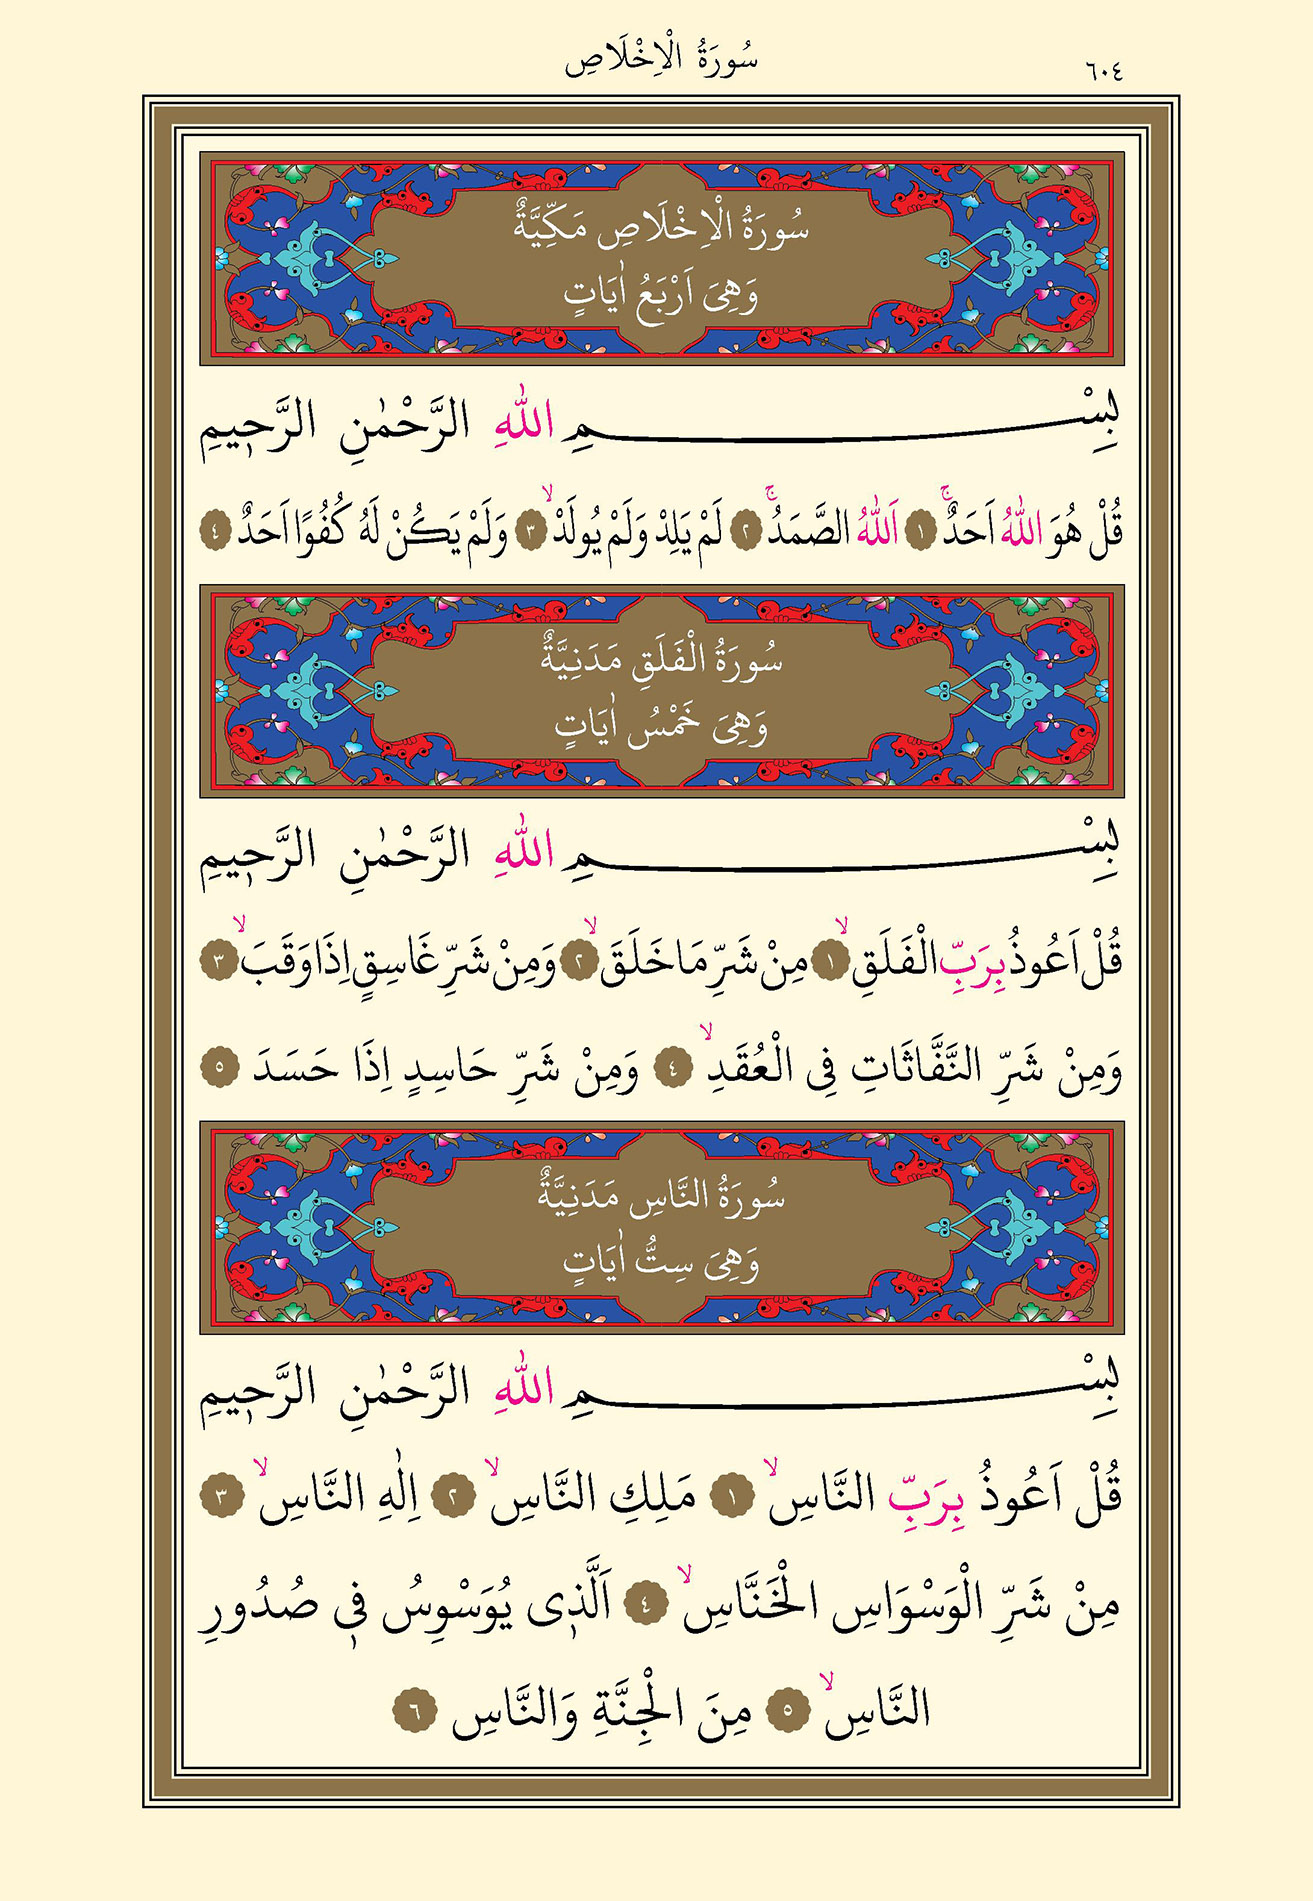 ٦٠٤
سُورَةُ الْاِخْلَاصِ
سُورَةُ الْاِخْلَاصِ مَكِّيَّةٌ
وَهِىَ اَرْبَعُ اٰيَاتٍ
بِسْمِ اللّٰهِ الرَّحْمٰنِ الرَّح۪يمِ
قُلْ هُوَ اللّٰهُ اَحَدٌۚ ١ اَللّٰهُ الصَّمَدُۚ ٢ لَمْ يَلِدْ وَلَمْ يُولَدْۙ ٣ وَلَمْ يَكُنْ لَهُ كُفُوًا اَحَدٌ ٤
سُورَةُ الْفَلَقِ مَدَنِيَّةٌ
وَهِىَ خَمْسُ اٰيَاتٍ
بِسْمِ اللّٰهِ الرَّحْمٰنِ الرَّح۪يمِ
قُلْ اَعُوذُ بِرَبِّ الْفَلَقِۙ ١ مِنْ شَرِّ مَا خَلَقَۙ ٢ وَمِنْ شَرِّ غَاسِقٍ اِذَا وَقَبَۙ ٣
وَمِنْ شَرِّ النَّفَّاثَاتِ فِى الْعُقَدِۙ ٤ وَمِنْ شَرِّ حَاسِدٍ اِذَا حَسَدَ ٥
سُورَةُ النَّاسِ مَدَنِيَّةٌ
وَهِىَ سِتُّ اٰيَاتٍ
بِسْمِ اللّٰهِ الرَّحْمٰنِ الرَّح۪يمِ
قُلْ اَعُوذُ بِرَبِّ النَّاسِۙ ١ مَلِكِ النَّاسِۙ ٢ اِلٰهِ النَّاسِۙ ٣
مِنْ شَرِّ الْوَسْوَاسِ الْخَنَّاسِۙ ٤ اَلَّذ۪ى يُوَسْوِسُ ف۪ى صُدُورِ
النَّاسِۙ ٥ مِنَ الْجِنَّةِ وَالنَّاسِ ٦